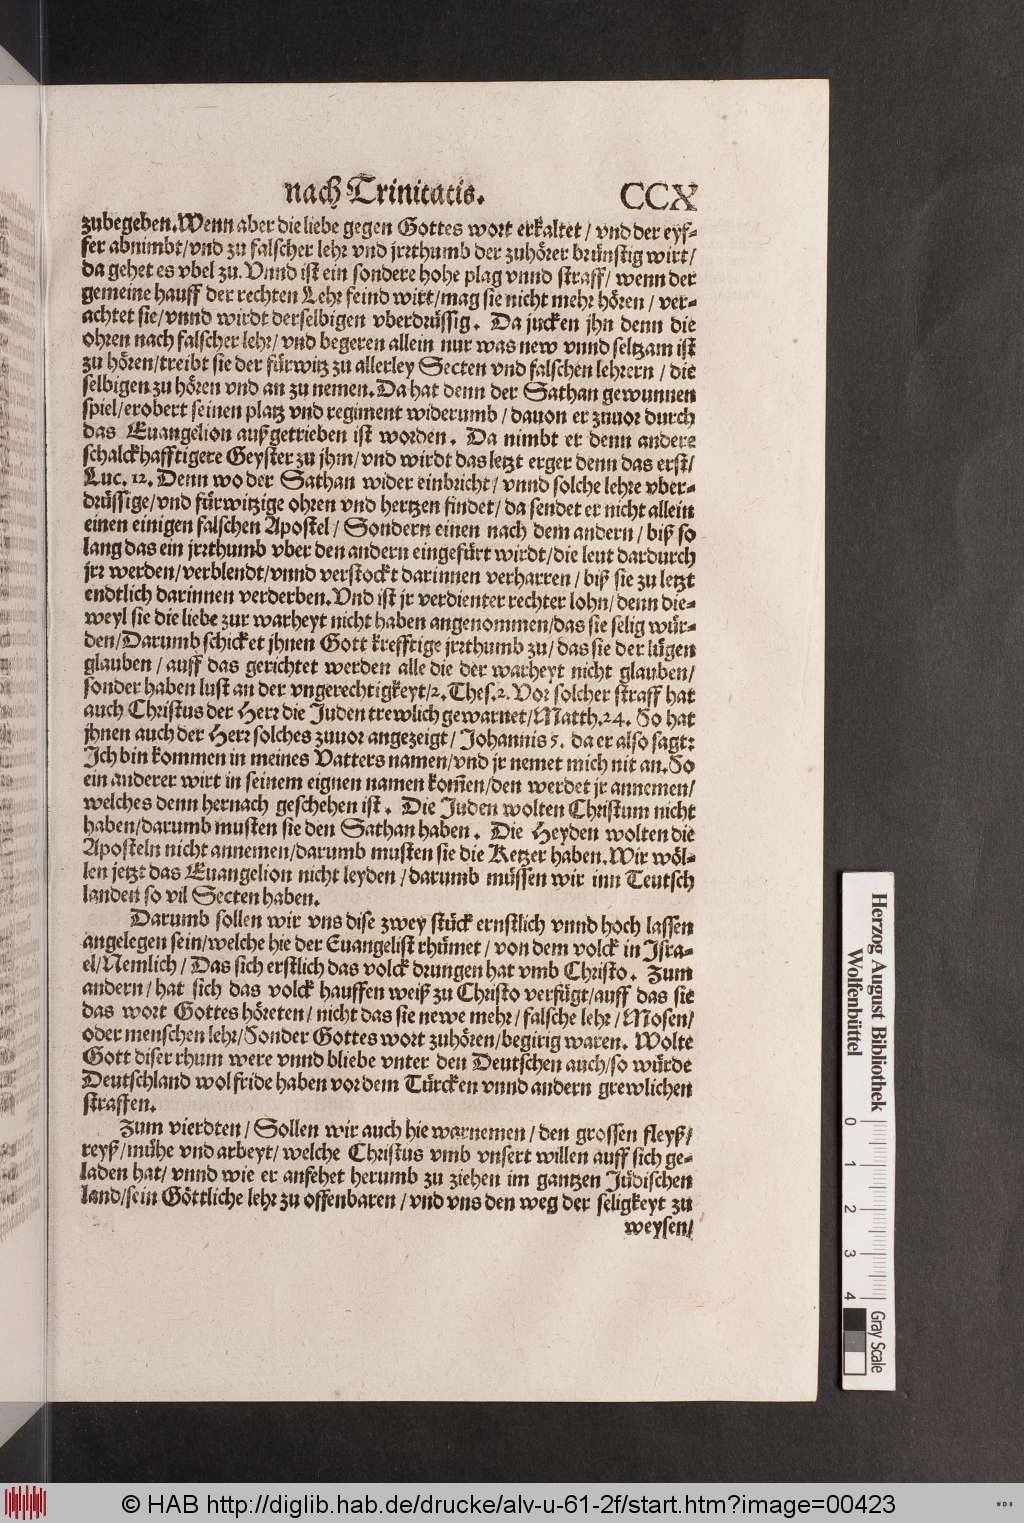 nach Trinitatis. CCX
zubegeben. Wenn aber die liebe gegen Gottes wort erkaltet / vnd der eyf-
fer abnimbt/vnd zu falscher lehr vnd jrrthumb der zuhörer brünstig wirt/
da gehet es vbel zu. Vnnd ist ein sondere hohe plag vnnd straff/ wenn der
gemeine hauff der rechten Lehr feind wirt/mag sie nicht mehr hören / ver-
achtet sie/vnnd wirdt derselbigen vberdrüssig. Da jucken jhn denn die
ohren nach falscher lehr/ vnd begeren allein nur was new vnnd seltzam ist
zu hören/treibt sie der fürwitz zu allerley Secten vnd falschen lehrern / die
selbigen zu hören vnd an zu nemen. Da hat denn der Sathan gewunnen
spiel/erobert seinen platz vnd regiment widerumb / dauon er zuuor durch
das Euangelion außgetrieben ist worden. Da nimbt er denn andere
schalckhafftigere Geyster zu jhm/vnd wirdt das letzt erger denn das erst/
Luc. 12. Denn wo der Sathan wider einbricht/ vnnd solche lehre vber-
drüssige/vnd fürwitzige ohren vnd hertzen findet/ da sendet er nicht allein
einen einigen falschen Apostel/ Sondern einen nach dem andern / biß so
lang das ein jrrthumb vber den andern eingefürt wirdt/die leut dardurch
jrr werden/verblendt/vnnd verstockt darinnen verharren / biß sie zu letzt
endtlich darinnen verderben. Vnd ist jr verdienter rechter lohn/ denn die-
weyl sie die liebe zur warheyt nicht haben angenommen/das sie selig wür-
den/Darumb schicket jhnen Gott krefftige jrrthumb zu/ das sie der lügen
glauben / auff das gerichtet werden alle die der warheyt nicht glauben/
sonder haben lust an der vngerechtigkeyt/2. Thes. 2. Vor solcher straff hat
auch Christus der Herr die Juden trewlich gewarnet/Matth. 24. So hat
jhnen auch der Herr solches zuuor angezeigt/ Johannis 5. da er also sagt:
Ich bin kommen in meines Vatters namen/vnd jr nemet mich nit an. So
ein anderer wirt in seinem eignen namen kom̃en/den werdet jr annemen/
welches denn hernach geschehen ist. Die Juden wolten Christum nicht
haben/darumb musten sie den Sathan haben. Die Heyden wolten die
Aposteln nicht annemen/darumb musten sie die Ketzer haben. Wir wöl-
len jetzt das Euangelion nicht leyden / darumb müssen wir inn Teutsch
landen so vil Secten haben.
Darumb sollen wir vns dise zwey stück ernstlich vnnd hoch lassen
angelegen sein/welche hie der Euangelist rhümet/ von dem volck in Isra-
el/Nemlich / Das sich erstlich das volck drungen hat vmb Christo. Zum
andern/ hat sich das volck hauffen weiß zu Christo verfügt/auff das sie
das wort Gottes höreten / nicht das sie newe mehr/ falsche lehr / Mosen/
oder menschen lehr/Sonder Gottes wort zuhören/begirig waren. Wolte
Gott diser rhum were vnnd bliebe vnter den Deutschen auch/so würde
Deutschland wol fride haben vor dem Türcken vnnd andern grewlichen
straffen.
Zum vierdten / Sollen wir auch hie warnemen / den grossen fleyß/
reyß/mühe vnd arbeyt/ welche Christus vmb vnsert willen auff sich ge-
laden hat/ vnnd wie er anfehet herumb zu ziehen im gantzen Jüdischen
land/sein Göttliche lehr zu offenbaren / vnd vns den weg der seligkeyt zu
weysen/
Herzog August Bibliothek
Wolfenbüttel
0 1 2 3 4
Gray Scale
© HAB http://diglib.hab.de/drucke/alv-u-61-2f/start.htm?image=00423